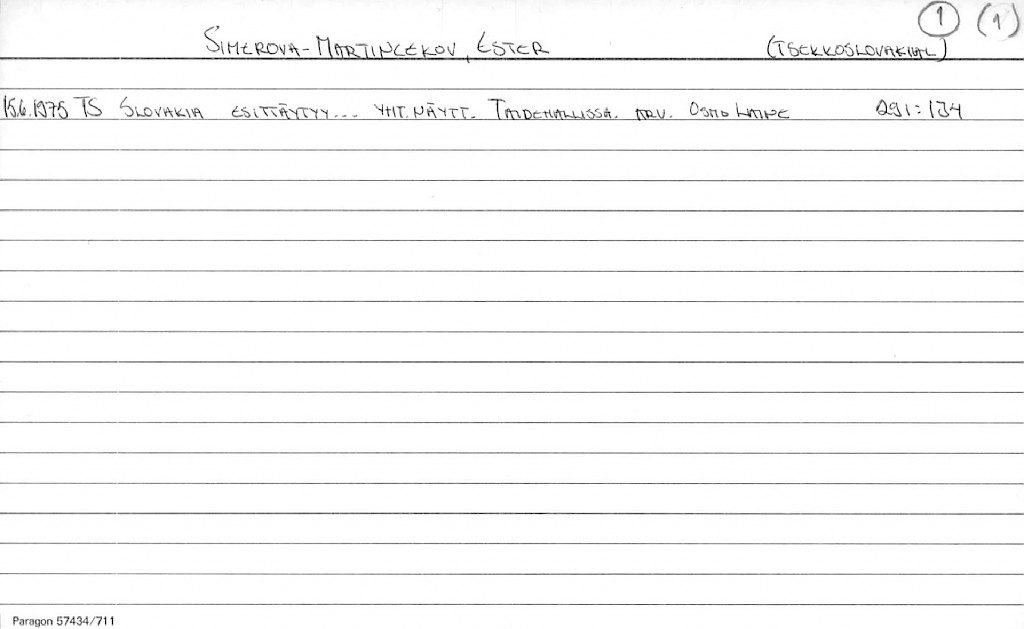 1 (1)
SIMEROVA-MARTINCEKOV, ESTER (TSEKKOSLOVAKIAL)
15.6.1975 TS SLOVAKIA ESITTÄYTYY... YHT.NÄYTT. TAIDEHALLISSA. ARV. OSMO LAINE 291:134
Paragon 57434/711